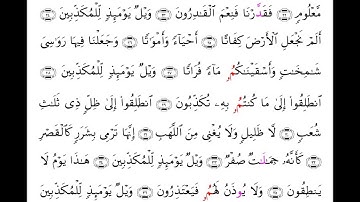 مَّعْلُومٍ ۝ فَقَدَّرْنَا فَنِعْمَ ٱلْقَٰدِرُونَ ۝ وَيْلٌ يَوْمَئِذٍ لِّلْمُكَذِّبِينَ ۝
أَلَمْ نَجْعَلِ ٱلْأَرْضَ كِفَاتًا ۝ أَحْيَآءً وَأَمْوَٰتًا ۝ وَجَعَلْنَا فِيهَا رَوَٰسِىَ
شَٰمِخَٰتٍ وَأَسْقَيْنَٰكُمُۥ مَّآءً فُرَاتًا ۝ وَيْلٌ يَوْمَئِذٍ لِّلْمُكَذِّبِينَ ۝
ٱنطَلِقُوٓا۟ إِلَىٰ مَا كُنتُمُۥ بِهِۦ تُكَذِّبُونَ ۝ ٱنطَلِقُوٓا۟ إِلَىٰ ظِلٍّ ذِى ثَلَٰثِ
شُعَبٍ ۝ لَّا ظَلِيلٍ وَلَا يُغْنِى مِنَ ٱللَّهَبِ ۝ إِنَّهَا تَرْمِى بِشَرَرٍ كَٱلْقَصْرِ
۝ كَأَنَّهُۥ جِمَٰلَٰتٌ صُفْرٌ ۝ وَيْلٌ يَوْمَئِذٍ لِّلْمُكَذِّبِينَ ۝ هَٰذَا يَوْمُ لَا
يَنطِقُونَ ۝ وَلَا يُوذَنُ لَهُمُۥ فَيَعْتَذِرُونَ ۝ وَيْلٌ يَوْمَئِذٍ لِّلْمُكَذِّبِينَ ۝